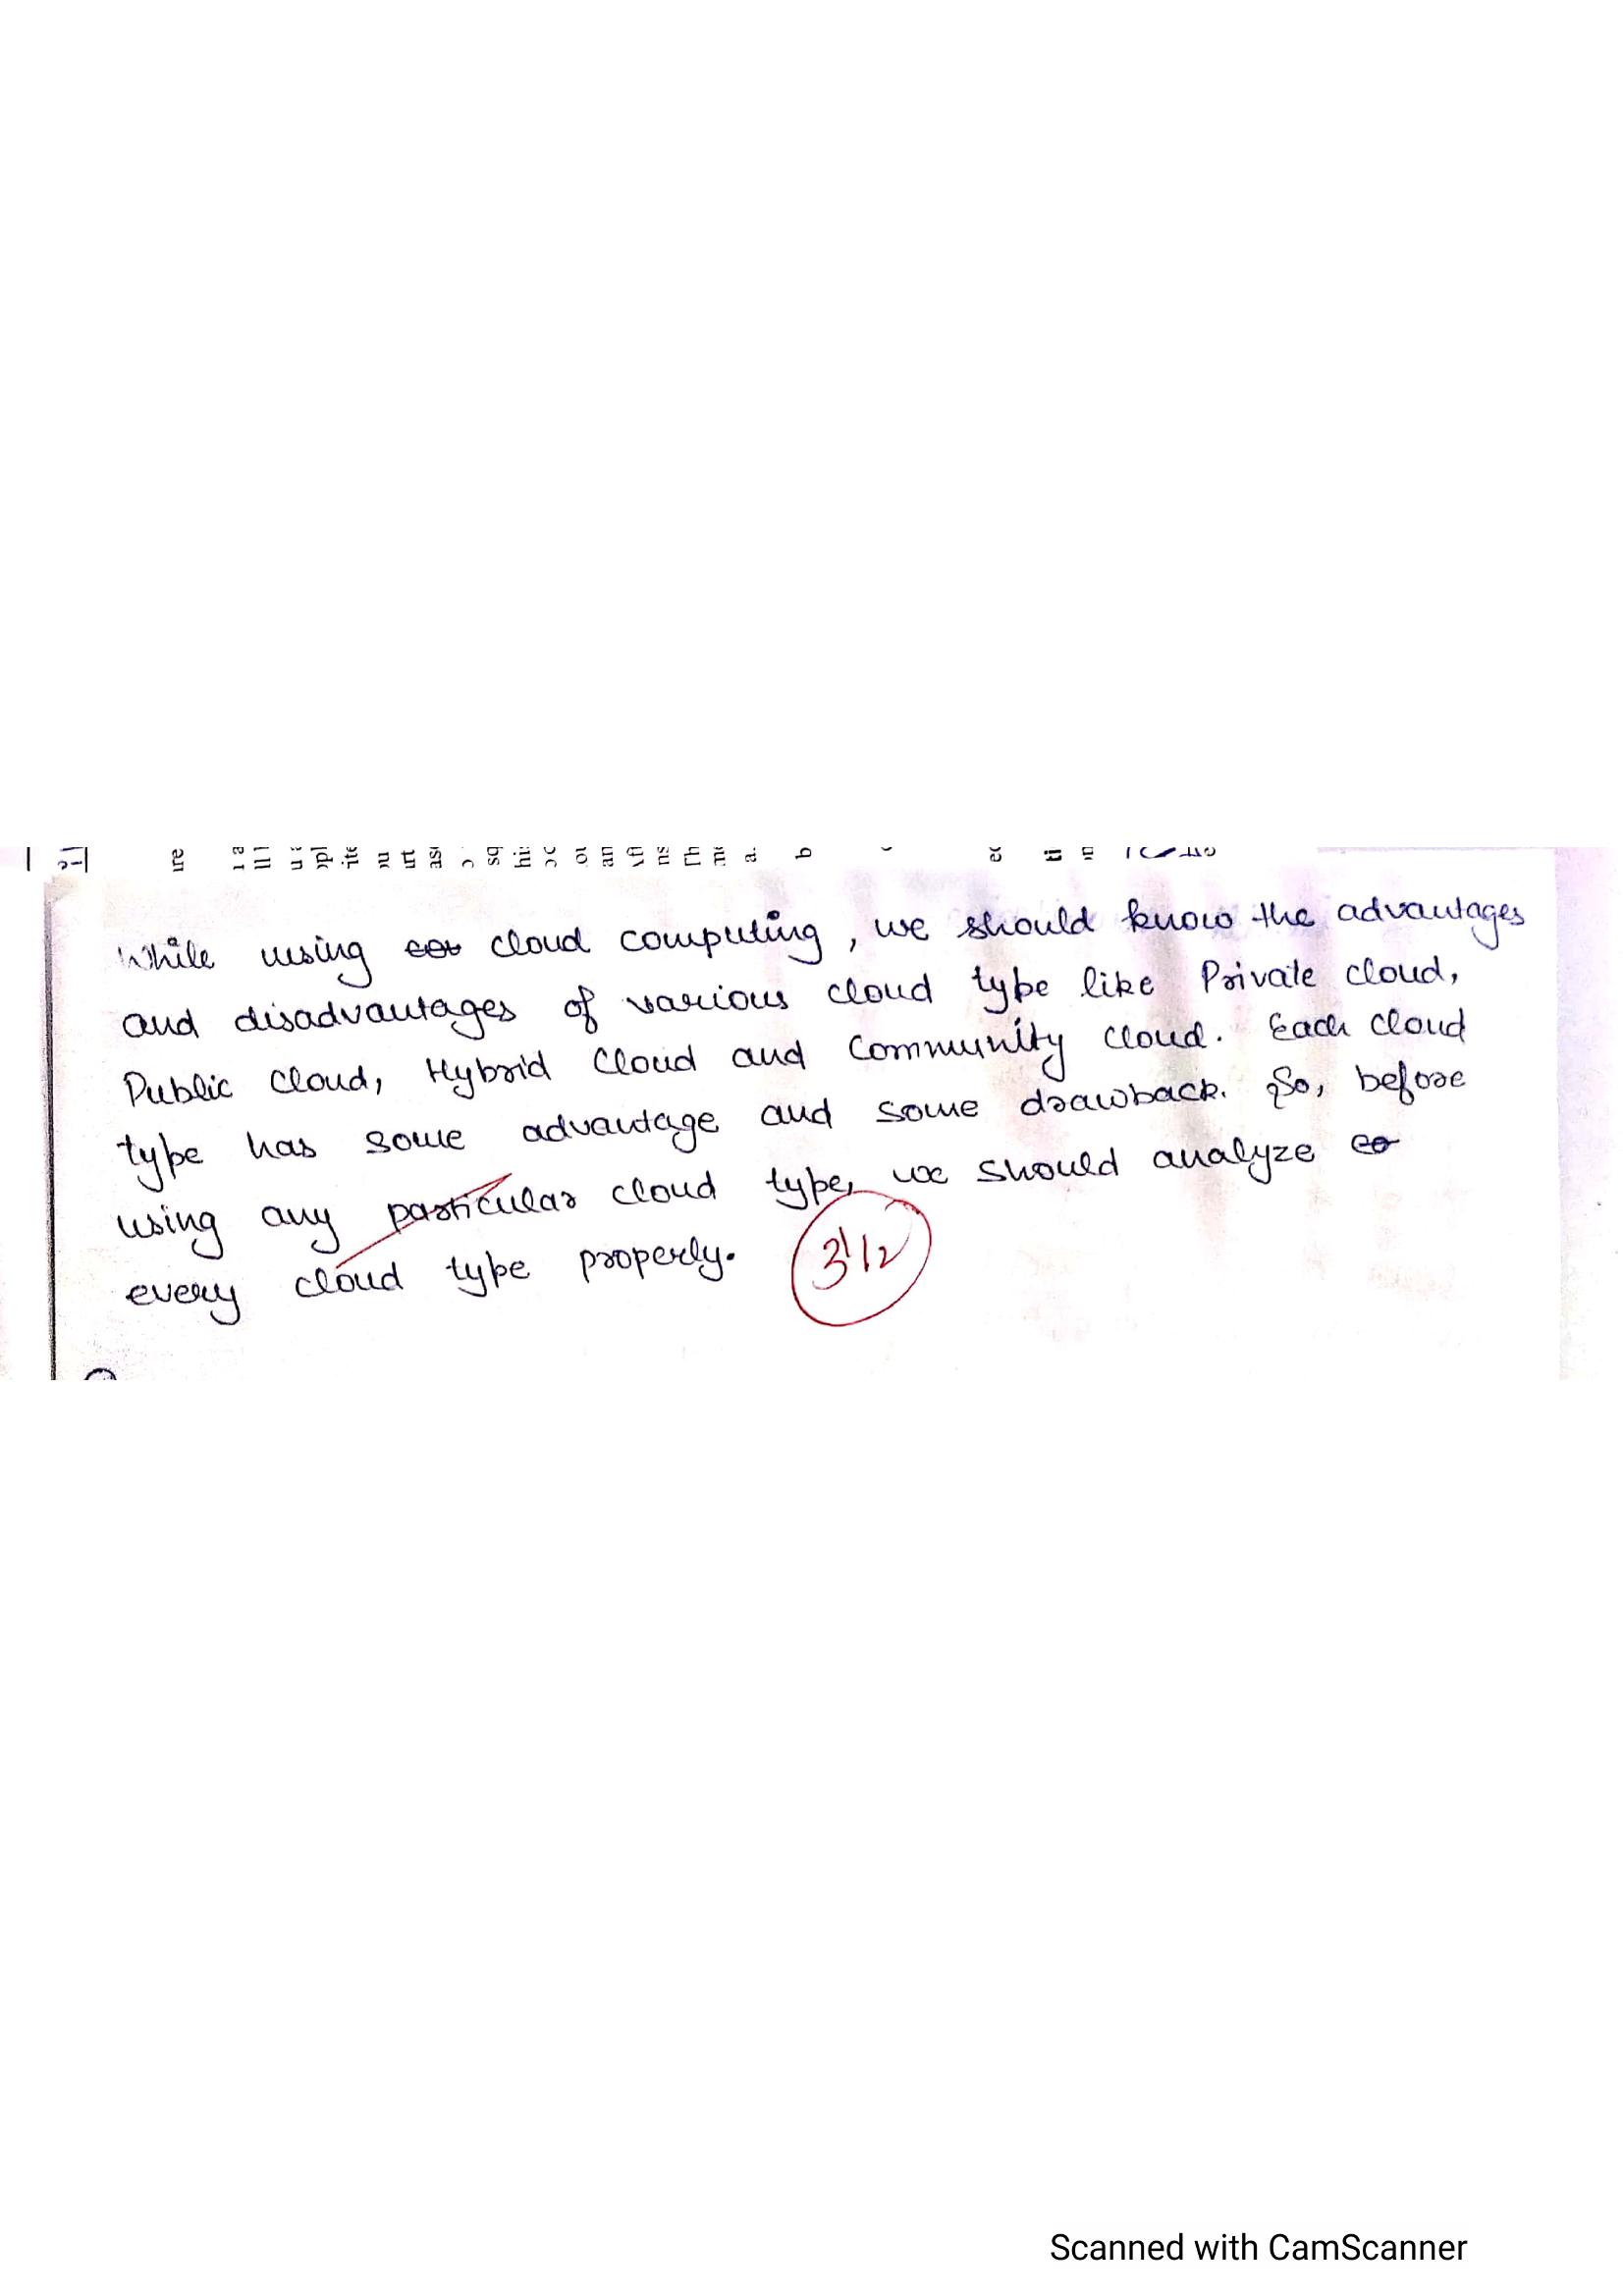 While using cloud computing, we should know the advantages
and disadvantages of various cloud type like Private cloud,
Public cloud, Hybrid cloud and Community cloud. Each cloud
type has some advantage and some drawback. So, before
using any particular cloud type, we should analyze
every cloud type properly.
3 1/2
Scanned with CamScanner